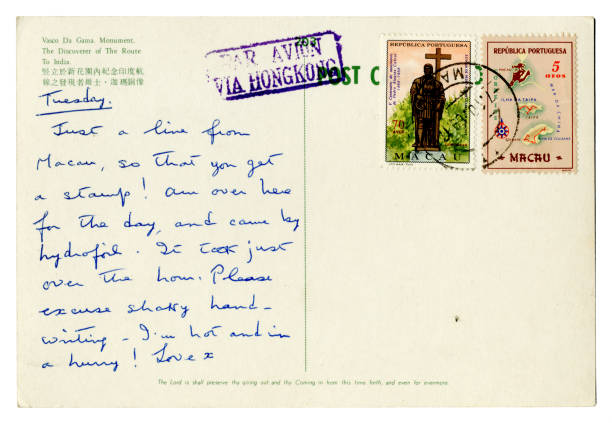 Vasco Da Gama Monument.
The Discoverer of The Route
To India.
豎立於新花園內紀念印度航
線之發現者爵士・伽瑪銅像
PAR AVION
VIA HONGKONG
POST C
REPÚBLICA PORTUGUESA
70
MACAU
REPÚBLICA PORTUGUESA
5
AVOS
ILHA DA TAIPA
MACAU
Tuesday.
Just a line from
Macau, so that you get
a stamp! Am over here
for the day, and came by
hydrofoil. It took just
over the hour. Please
excuse shaky hand-
writing - I'm hot and in
a hurry! Love x
The Lord is shall preserve thy going out and thy Coming in from this time forth, and even for evermore.